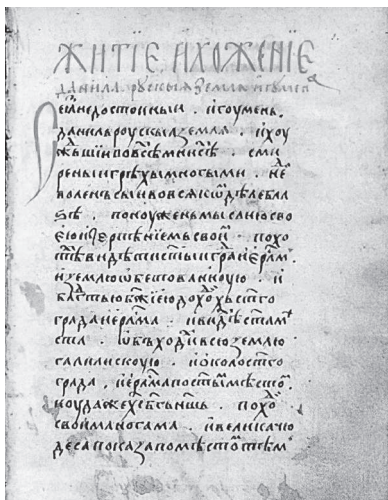 ЖИТІЄ И ХОЖЕНІЄ
данила рускыѧ землѧ игумена
Сеи недостоиныи . игоумень .
данилъ роускыѧ землѧ . и хоу
жъшїи въ всѣⷯ мнисѣⷯ . сми
рены и грѣхы многыми . не
воленъ сы и во всякоⷨ дѣле бла
ѕѣ . поноуженъ мыслию сво
ею и нетерпѣнїемъ своиⷨ . похо
тѣⷡ видѣти ст҃ыи граⷣ иер҃лмъ .
и землю ѡбетованноую . и
блгⷣтью бж҃їею дохоⷣ ст҃го
града иер҃лма . и видѣ ст҃аа мѣ
ста . ѡбъходиⷯ всю землю
галилискоую . и ѡколо ст҃го
града . иер҃лма по ст҃ыⷨ мѣстоⷨ .
коуда же хс҃ бг҃ъ нш҃ь . похоⷣ
своима ногама . и велика чю
деса показа по мѣстоⷨ тѣⷨ